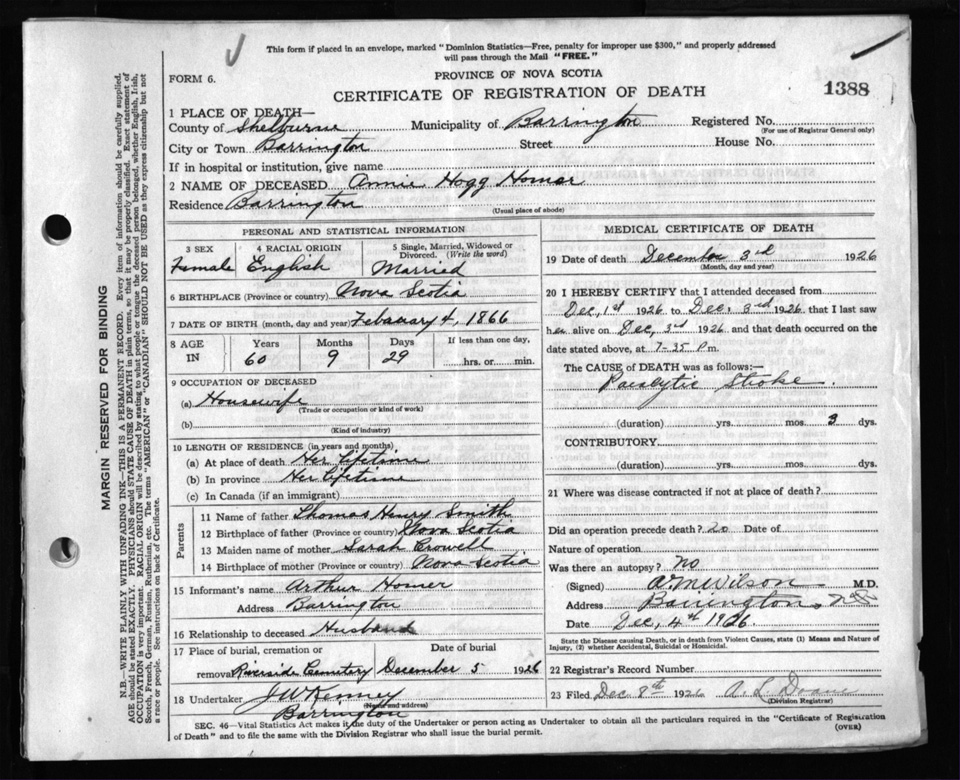 This form if placed in an envelope, marked "Dominion Statistics—Free, penalty for improper use $300," and properly addressed
will pass through the Mail "FREE."
FORM 6.
PROVINCE OF NOVA SCOTIA
CERTIFICATE OF REGISTRATION OF DEATH
1388
1 PLACE OF DEATH—
County of Shelburne Municipality of Barrington Registered No.
(For use of Registrar General only)
City or Town Barrington Street House No.
If in hospital or institution, give name
2 NAME OF DECEASED Annie Hogg Homer
Residence Barrington
(Usual place of abode)
PERSONAL AND STATISTICAL INFORMATION
3 SEX 4 RACIAL ORIGIN 5 Single, Married, Widowed or
Divorced. (Write the word)
Female English Married
6 BIRTHPLACE (Province or country) Nova Scotia
7 DATE OF BIRTH (month, day and year) February 4, 1866
8 AGE Years Months Days If less than one day,
IN 60 9 29 hrs. or min.
9 OCCUPATION OF DECEASED
(a) Housewife
(Trade or occupation or kind of work)
(b)
(Kind of industry)
10 LENGTH OF RESIDENCE (in years and months)
(a) At place of death Her Lifetime
(b) In province Her Lifetime
(c) In Canada (if an immigrant)
Parents
11 Name of father Thomas Henry Smith
12 Birthplace of father (Province or country) Nova Scotia
13 Maiden name of mother Sarah Crowell
14 Birthplace of mother (Province or country) Nova Scotia
15 Informant's name Arthur Homer
Address Barrington
16 Relationship to deceased Husband
17 Place of burial, cremation or Date of burial
removal Riverside Cemetery December 5 1926
18 Undertaker J W Kenney
(Name and address)
Barrington
MEDICAL CERTIFICATE OF DEATH
19 Date of death December 3rd 1926
(Month, day and year)
20 I HEREBY CERTIFY that I attended deceased from
Dec, 1st 1926 to Dec, 3rd 1926 that I last saw
her alive on Dec, 3rd 1926 and that death occurred on the
date stated above, at 7-35 P m.
The CAUSE of DEATH was as follows:—
Paralytic Stroke.
(duration) yrs. mos. 3 dys.
CONTRIBUTORY
(duration) yrs. mos. dys.
21 Where was disease contracted if not at place of death?
Did an operation precede death? no Date of
Nature of operation
Was there an autopsy? no
(Signed) A.M. Wilson M.D.
Address Barrington, N.S.
Date Dec, 4th 1926.
State the Disease causing Death, or in death from Violent Causes, state (1) Means and Nature of
Injury, (2) whether Accidental, Suicidal or Homicidal.
22 Registrar's Record Number
23 Filed Dec 8th 1926 A L Doane
(Division Registrar)
SEC. 46—Vital Statistics Act makes it the duty of the Undertaker or person acting as Undertaker to obtain all the particulars required in the "Certificate of Registration
of Death" and to file the same with the Division Registrar who shall issue the burial permit.
(OVER)
MARGIN RESERVED FOR BINDING
N.B.—WRITE PLAINLY WITH UNFADING INK—THIS IS A PERMANENT RECORD. Every item of information should be carefully supplied.
AGE should be stated EXACTLY. PHYSICIANS should STATE CAUSE OF DEATH in plain terms, so that it may be properly classified. Exact statement of
OCCUPATION is very important. RACIAL ORIGIN will be described by stating to what people or tongue the deceased person belonged, whether English, Irish,
Scotch, French, German, Russian, Ruthenian, etc. The terms "AMERICAN" or "CANADIAN" SHOULD NOT BE USED as they express citizenship but not
a race or people. See instructions on back of Certificate.